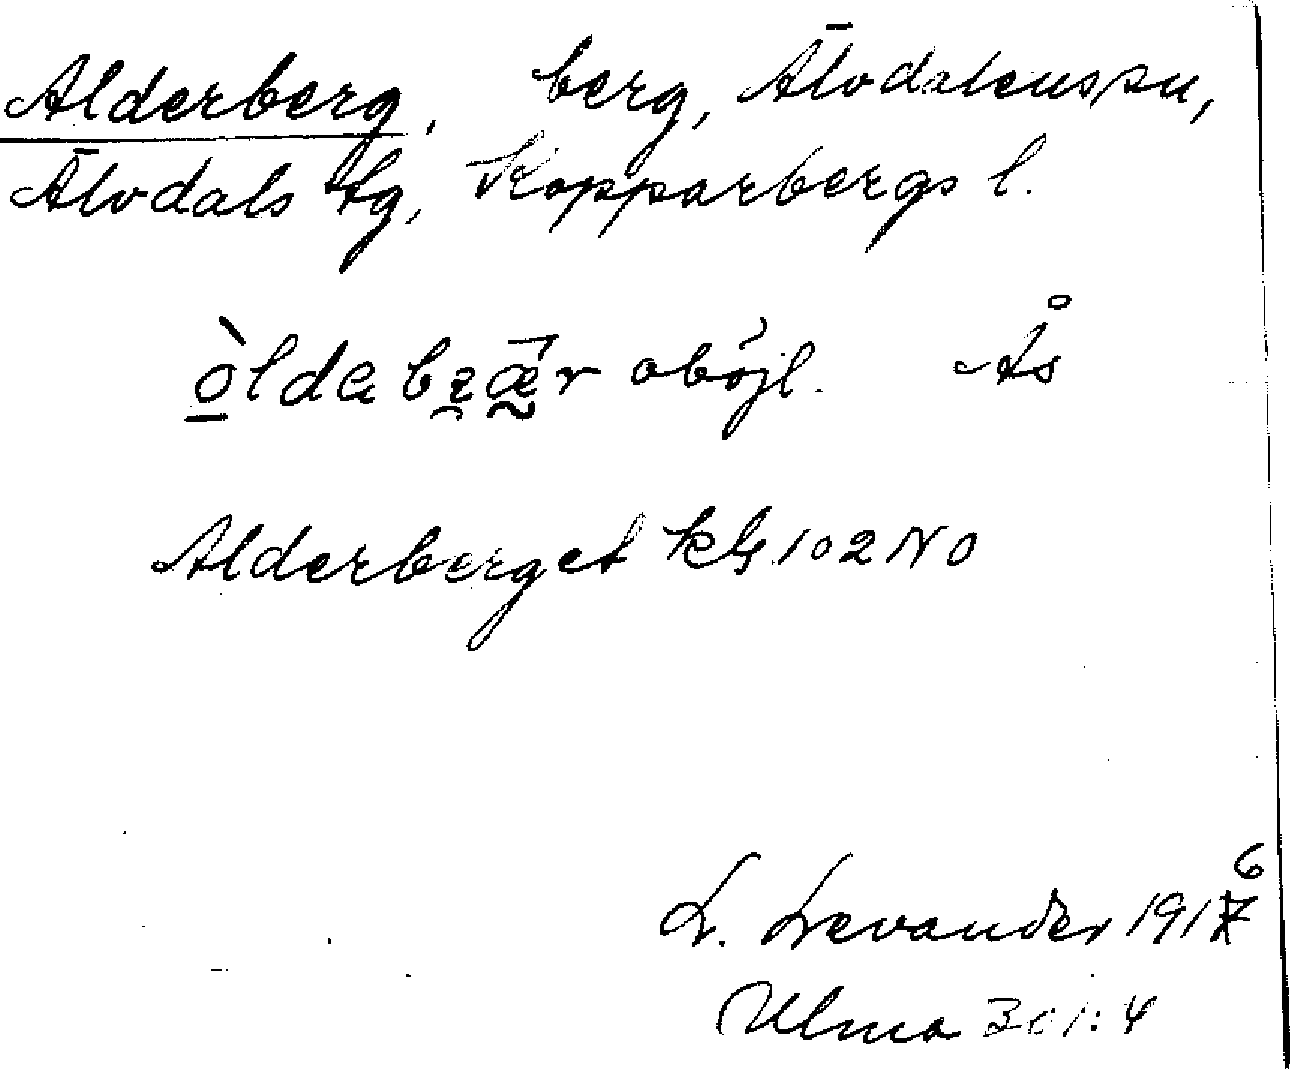 Alderberg, berg, Älvdalens sn,
Älvdals tg, Kopparbergs l.
obøjl. Ås
Alderberget kbl 102 NO
L. Levander 1916
Ulma 301:4